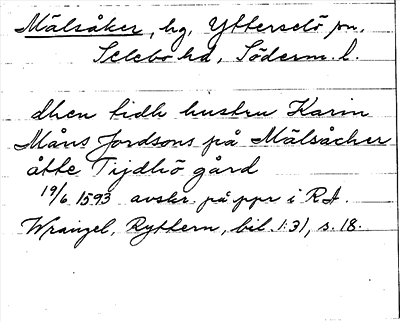 Mälsåker, hg, Ytterselö sn,
Selebo hd, Söderm. l.
dhen tidh hustru Karin
Måns Jordsons på Mälsåcher
åtte Tijdhö gård
19/6 1593 avskr. på ppr i RA.
Wrangel, Ryttern, bil. 1:31, s. 18.